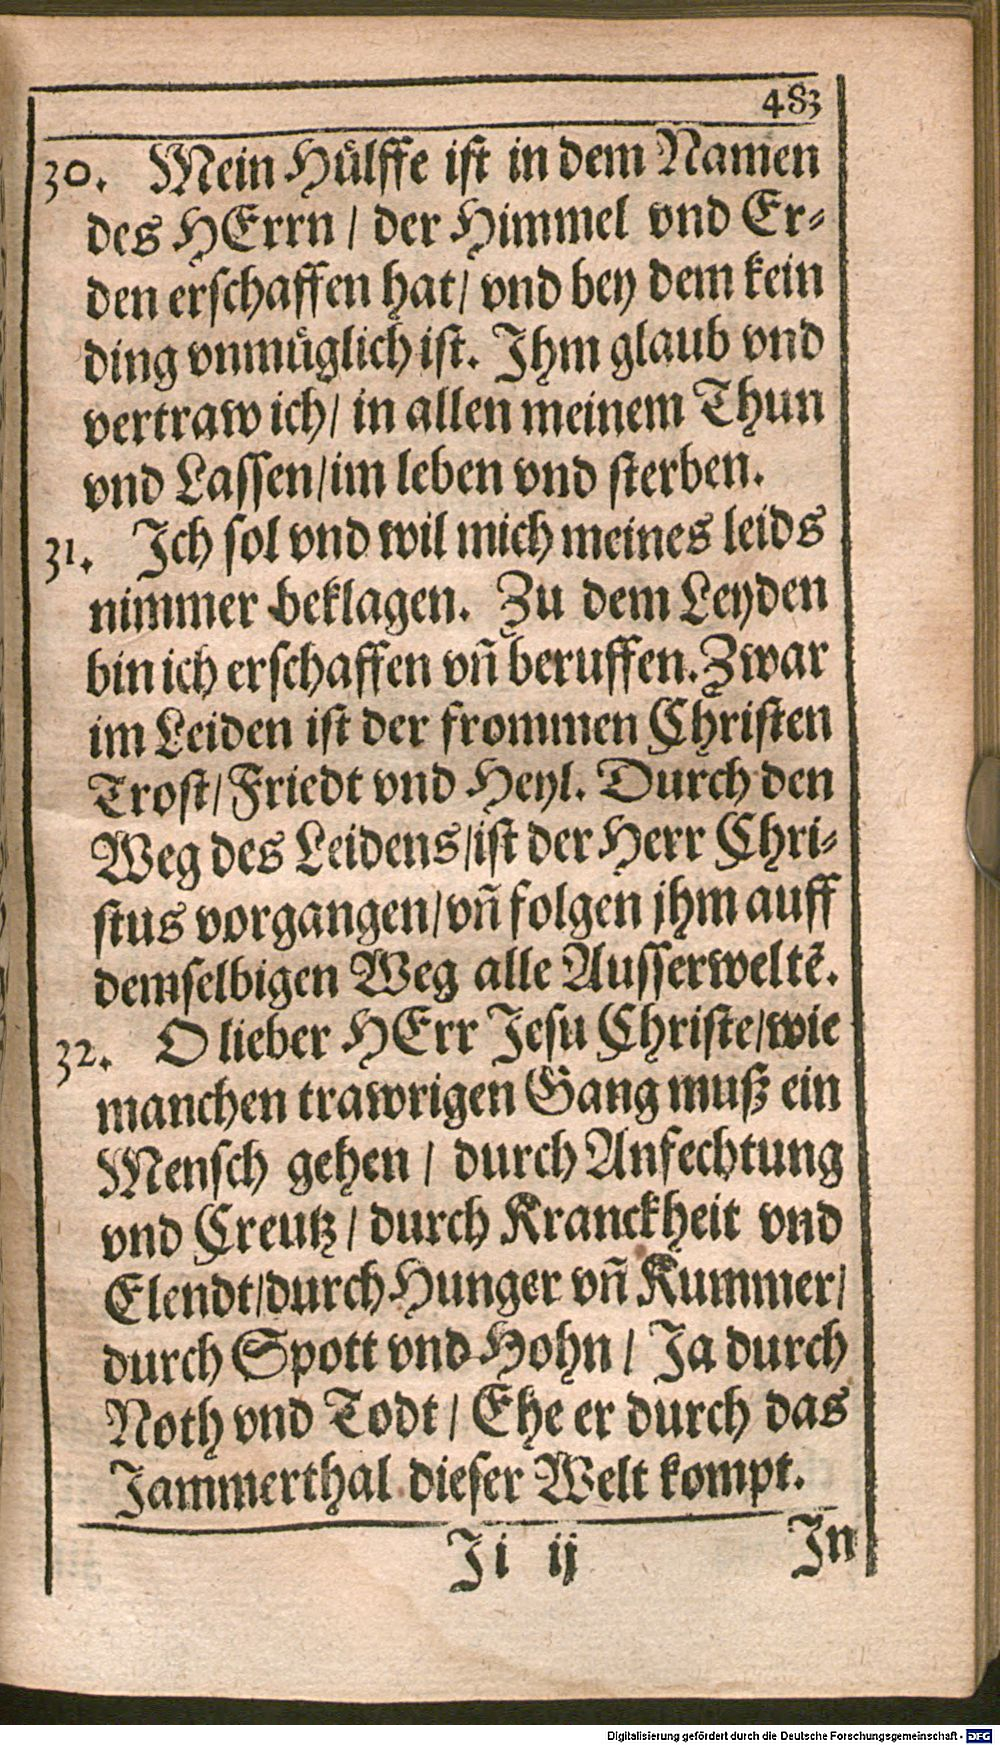 483
30. Mein Hülffe ist in dem Namen
des HErrn / der Himmel vnd Er-
den erschaffen hat / vnd bey dem kein
ding vnmüglich ist. Ihm glaub vnd
vertraw ich / in allen meinem Thun
vnd Lassen / im leben vnd sterben.
31. Ich sol vnd wil mich meines leids
nimmer beklagen. Zu dem Leyden
bin ich erschaffen vñ beruffen. Zwar
im Leiden ist der frommen Christen
Trost / Friedt vnd Heyl. Durch den
Weg des Leidens / ist der Herr Chri-
stus vorgangen / vñ folgen jhm auff
demselbigen Weg alle Ausserweltẽ.
32. O lieber HErr Jesu Christe / wie
manchen trawrigen Gang muß ein
Mensch gehen / durch Anfechtung
vnd Creutz / durch Kranckheit vnd
Elendt / durch Hunger vñ Kummer /
durch Spott vnd Hohn / Ja durch
Noth vnd Todt / Ehe er durch das
Jammerthal dieser Welt kompt.
Ji ij In
Digitalisierung gefördert durch die Deutsche Forschungsgemeinschaft - DFG